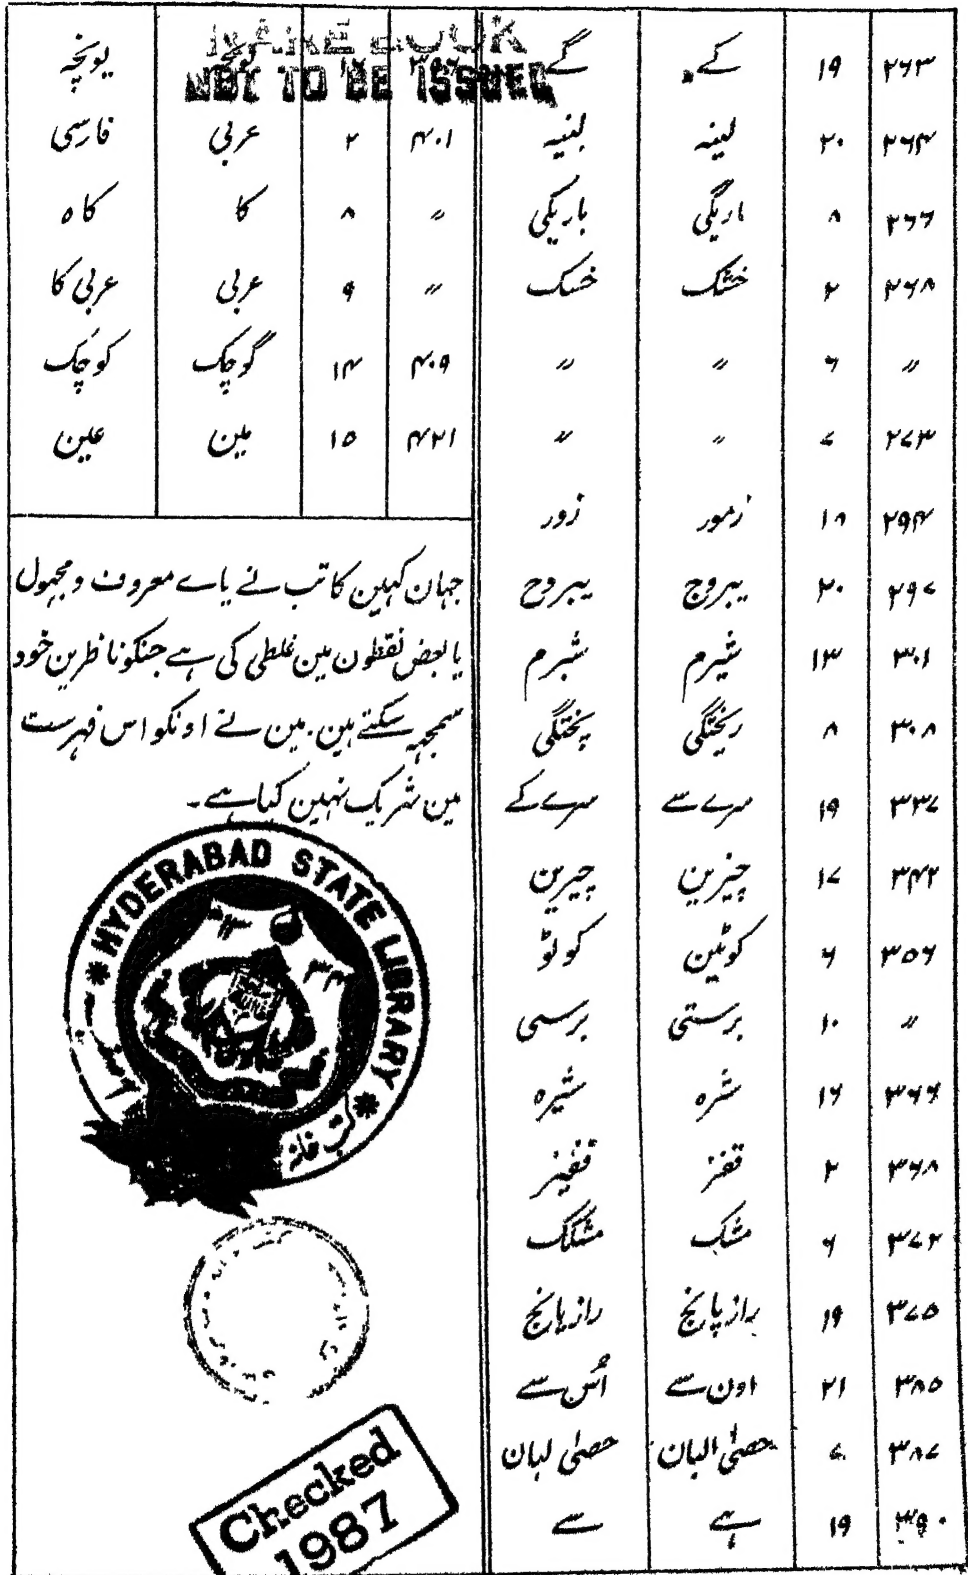 ۲۶۳ ۱۹ کے گے
۲۶۴ ۲۰ لینہ لبنیہ
۲۶۶ ۸ اریگی باریکی
۲۶۸ ۲ خشک خسک
〃 ۶ 〃 〃
۲۷۳ ۷ 〃 〃
۲۹۴ ۱۸ زمور زور
۲۹۷ ۲۰ یبروج یبروح
۳۰۱ ۱۳ شیرم شبرم
۳۰۸ ۸ ریختگی پختگی
۳۳۷ ۱۹ سرے سے سرے کے
۳۴۲ ۱۷ چیزین چیرین
۳۵۶ ۶ کوٹین کوٹو
〃 ۱۰ برستی برسی
۳۶۶ ۱۶ شرہ شیرہ
۳۶۸ ۲ قفز قفیز
۳۷۲ ۶ مشک مشکک
۳۷۵ ۱۹ راز پانج رازیانج
۳۸۵ ۲۱ اون سے اُس سے
۳۸۷ ۷ حصیٰ البان حصیٰ لبان
۳۹۰ ۱۹ ہے سے
RARE BOOK
NOT TO BE ISSUED
یونچہ
۴۰۱ ۲ عربی فارسی
〃 ۸ کا کاہ
〃 ۹ عربی عربی کا
۴۰۹ ۱۴ گوچک کوچک
۴۲۱ ۱۵ مین عین
جہان کہین کاتب نے یاے معروف و مجہول
یا بعض نقطون مین غلطی کی ہے جنکو ناظرین خود
سمجھہ سکتے ہین۔ مین نے اونکو اس فہرست
مین شریک نہین کیا ہے۔
HYDERABAD STATE LIBRARY
کتب خانہ
Checked
1987